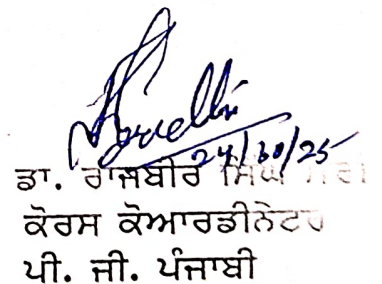 24/10/25
ਡਾ. ਰਾਜਬੀਰ ਸਿੰਘ
ਕੋਰਸ ਕੋਆਰਡੀਨੇਟਰ
ਪੀ. ਜੀ. ਪੰਜਾਬੀ